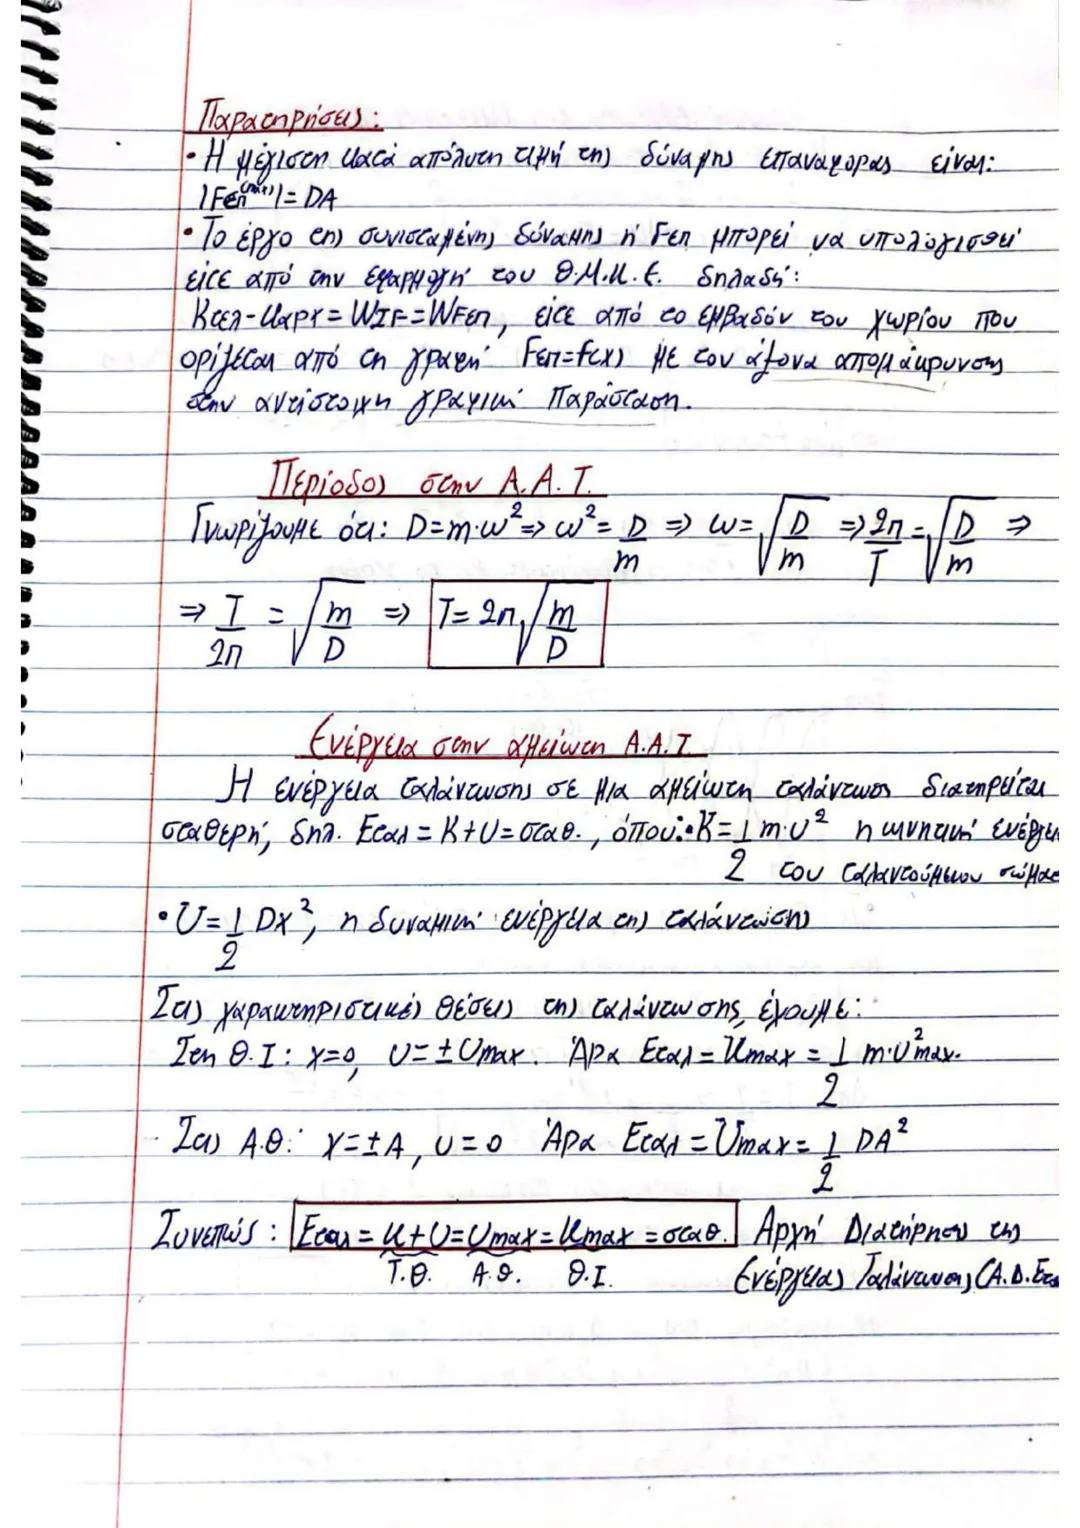 Παρατηρήσεις:
• Η μέγιστη κατά απόλυτη τιμή της δύναμης επαναφοράς είναι:
|Fεπ(max)| = DA
• Το έργο της συνισταμένης δύναμης ή Fεπ μπορεί να υπολογισθεί
είτε από την εφαρμογή του Θ.Μ.Κ.Ε. δηλαδή:
Kτελ-Kαρχ = WΣF = WFεπ, είτε από το εμβαδόν του χωρίου που
ορίζεται από τη γραφή Fεπ=f(x) με τον άξονα απομάκρυνσης
στην αντίστοιχη γραφική παράσταση.
Περίοδος στην Α.Α.Τ.
Γνωρίζουμε ότι: D=m·ω² ⇒ ω² = D/m ⇒ ω = √(D/m) ⇒ 2π/T = √(D/m) ⇒
⇒ T/2π = √(m/D) ⇒ T = 2π√(m/D)
Ενέργεια στην αμείωτη Α.Α.Τ.
Η ενέργεια ταλάντωσης σε μια αμείωτη ταλάντωση διατηρείται
σταθερή, δηλ. Εταλ = K+U = σταθ., όπου: • K = 1/2 m·υ² η κινητική ενέργει
του ταλαντούμενου σώματ
• U = 1/2 Dx², η δυναμική ενέργεια της ταλάντωσης
Στις χαρακτηριστικές θέσεις της ταλάντωσης, έχουμε:
Στη Θ.Ι: x=0, υ=±υmax. Άρα Εταλ = Kmax = 1/2 m·υ²max.
- Στις Α.Θ: x=±A, υ=0 Άρα Εταλ = Umax = 1/2 DA²
Συνεπώς: Εταλ = K+U = Umax = Kmax = σταθ. Αρχή Διατήρησης της
Τ.Θ. Α.Θ. Θ.Ι. Ενέργειας Ταλάντωσης (Α.Δ.Ετα